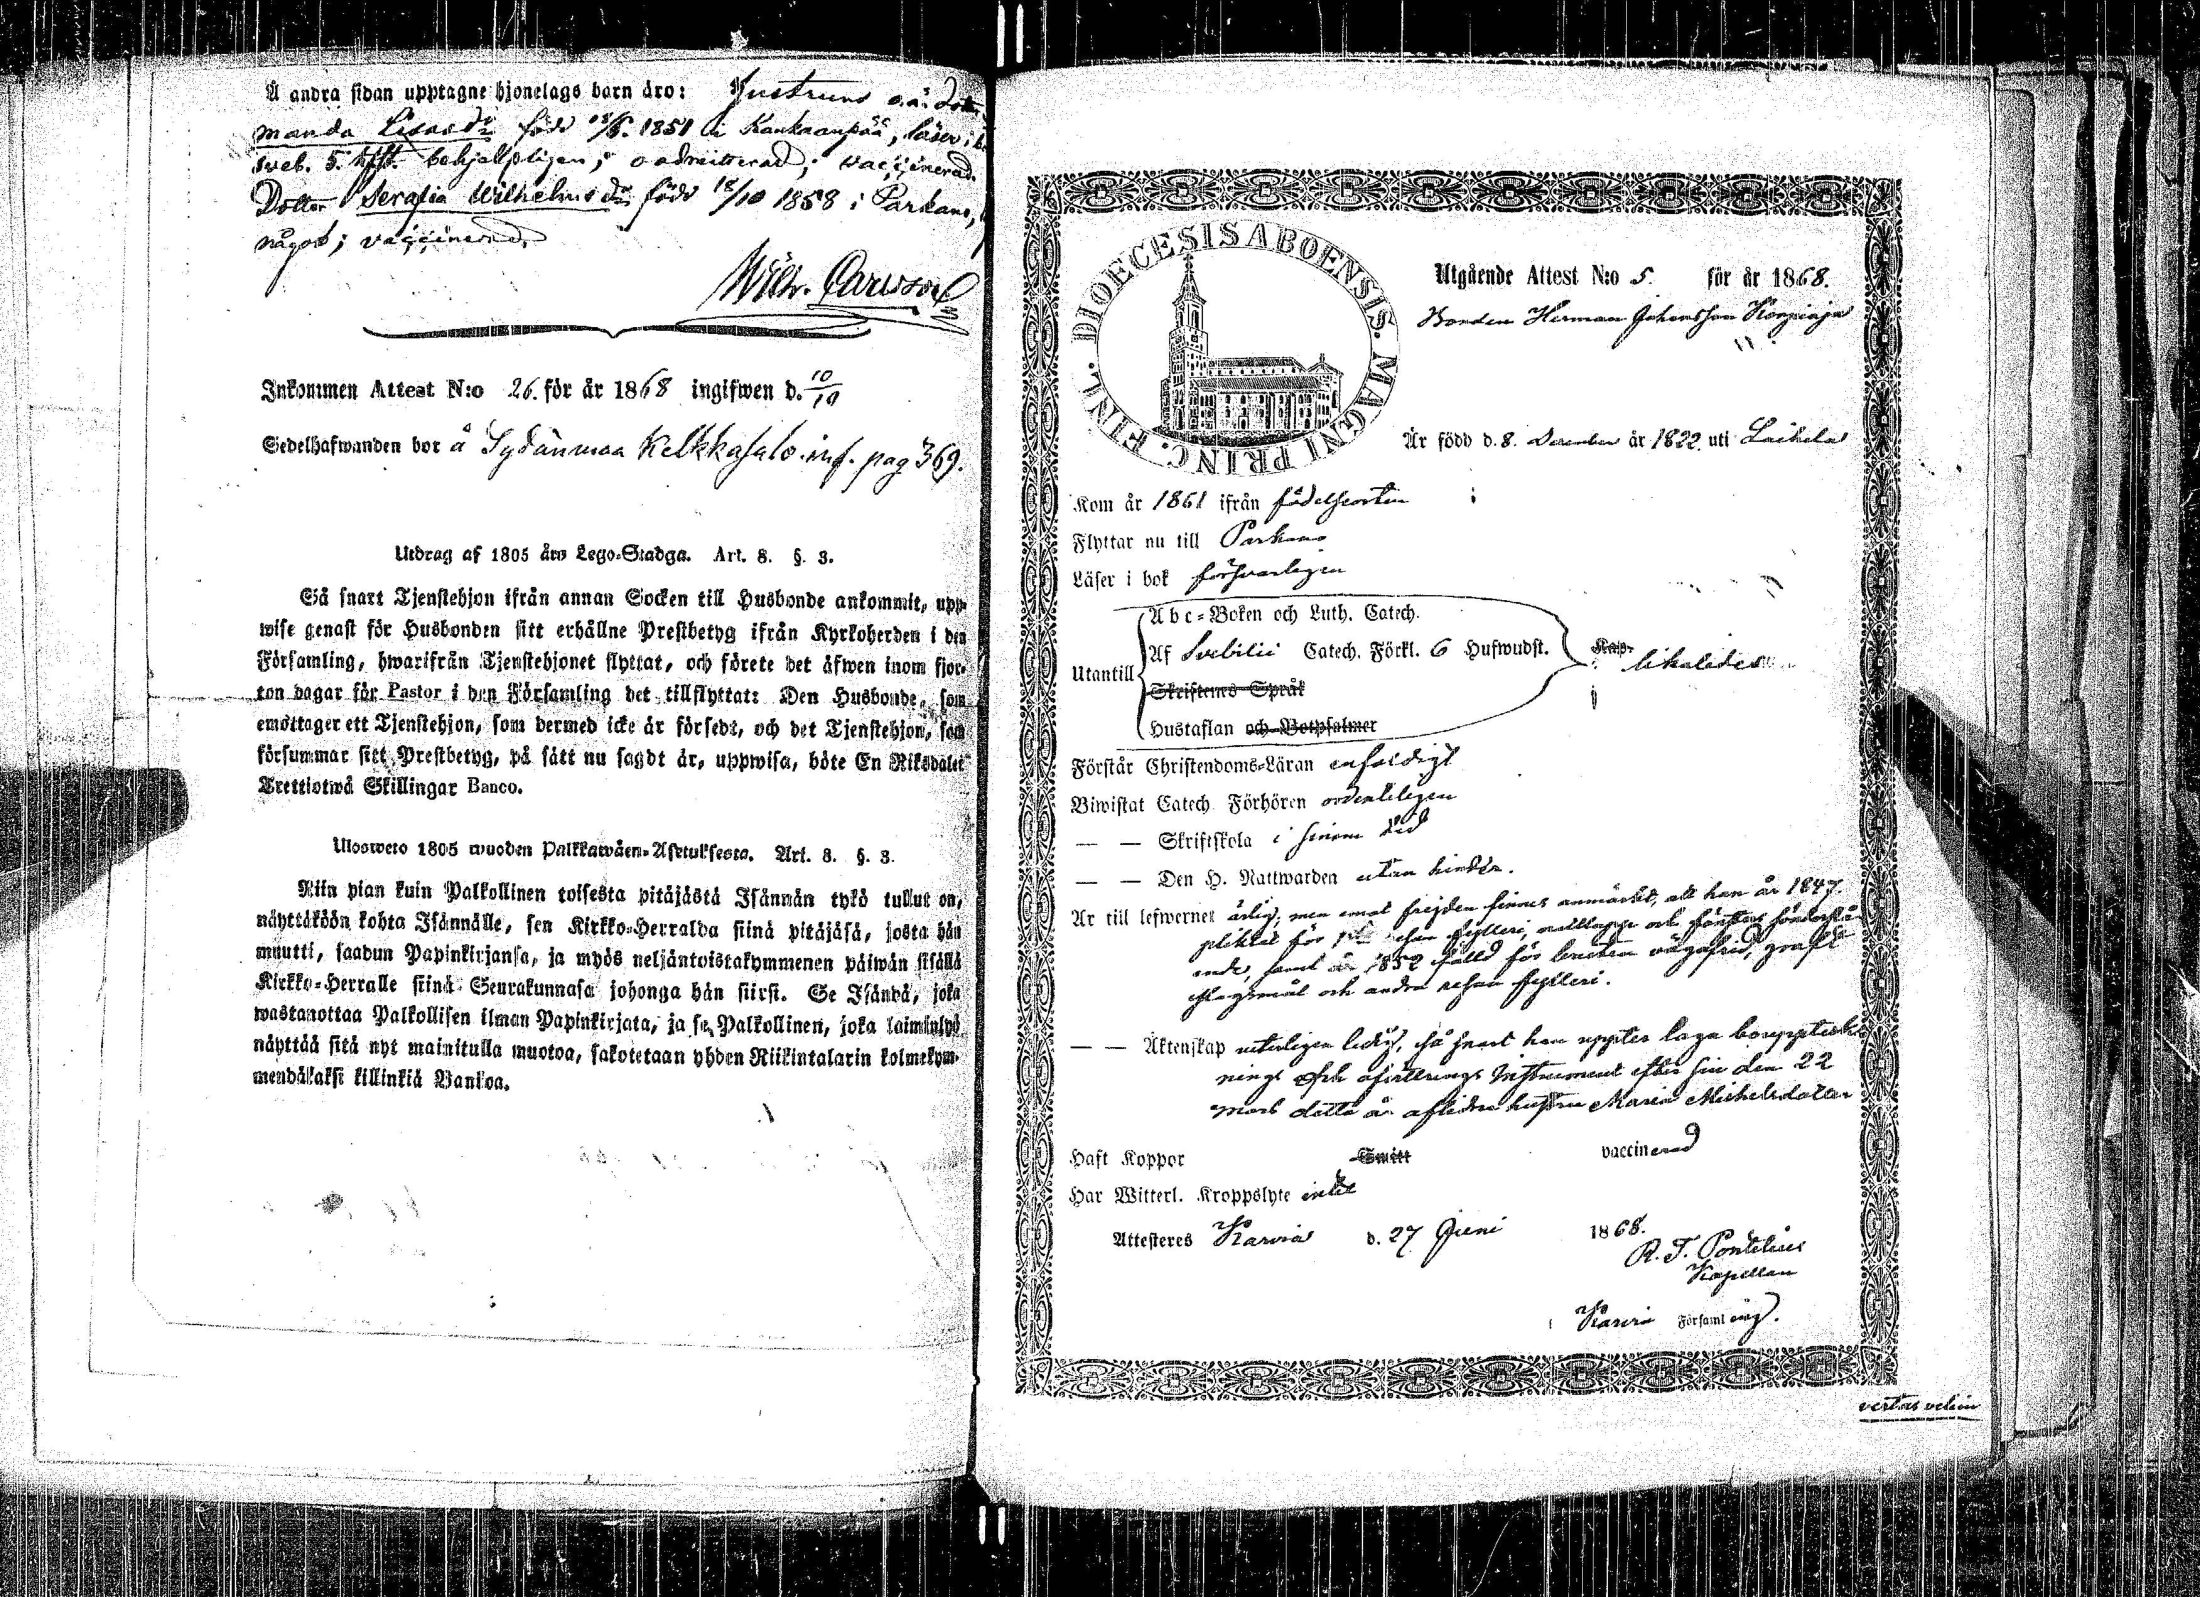 Å andra sidan upptagne hjonelags barn äro: Hustruns o.ä. dotter
manda Lisasdr född 18/5. 1851 i Kankaanpää, läser i
sveb. 5. hfst. behjelpligen; oadmitterad; vaccinerad.
Dotter Serafia Wilhelmsdr född 18/10 1858 i Parkano,
något; vaccinerad.
Wilh. Carlsson
Inkommen Attest N:o 26. för år 1868 ingifwen d. 10/10
Sedelhafwanden bor å Sydänmaa Kelkkasalo. inf. pag 369.
Utdrag af 1805 års Lego-Stadga. Art. 8. §. 3.
Så snart Tjenstehjon ifrån annan Socken till Husbonde ankommit, upp-
wise genast för Husbonden sitt erhållne Prestbetyg ifrån Kyrkoherden i den
Församling, hwarifrån Tjenstehjonet flyttat, och förete det äfwen inom fjor-
ton dagar för Pastor i den Församling det tillflyttat: Den Husbonde, som
emottager ett Tjenstehjon, som dermed icke är försedt, och det Tjenstehjon, som
försummar sitt Prestbetyg, på sätt nu sagdt är, uppwisa, böte En Riksdaler
Trettiotwå Skillingar Banco.
Ulosweto 1805 wuoden Palkkawäen-Asetuksesta. Art. 8. §. 3.
Niin pian kuin Palkollinen toisesta pitäjästä Isännän tykö tullut on,
näyttäköön kohta Isännälle, sen Kirkko-Herralda siinä pitäjäsä, josta hän
muutti, saadun Papinkirjansa, ja myös neljäntoistakymmenen päiwän sisällä
Kirkko-Herralle siinä Seurakunnasa johonga hän siirsi. Se Isändä, joka
wastanottaa Palkollisen ilman Papinkirjata, ja se Palkollinen, joka laiminlyö
näyttää sitä nyt mainitulla muotoa, sakotetaan yhden Riikintalarin kolmekym-
mendäkaksi killinkiä Bankoa.
DIOECESIS ABOENSIS. MAGNI PRINC. FINL.
Utgående Attest N:o 5. för år 1868.
Bonden Herman Johansson Korpiaja
Är född d. 8. December år 1822. uti Laihela
Kom år 1861 ifrån födelseorten
Flyttar nu till Parkano
Läser i bok försvarligen
Utantill
Abc-Boken och Luth. Catech.
Af Svebilii Catech. Förkl. 6 Hufwudst.
Skriftenes Språk
Hustaflan och Botpsalmer
Kap. likaledes
Förstår Christendoms-Läran enfaldigt
Biwistat Catech. Förhören ordentligen
— — Skriftskola i sinom tid
— — Den H. Nattwarden utan hinder.
Är till lefwernet ärlig; men emot frejden finnes anmärkt, att han år 1847.
pliktat för resan fylleri, och fönsters sönderslå-
ende, samt år 1852 fälld för brutten vägafrid, groft
slagsmål och andra resan fylleri.
— — Äktenskap veterligen ledig, så snart han uppter laga bouppteck-
nings och afvittrings Instrument efter sin den 22
mars detta år aflidna hustru Maria Michelsdotter
Haft Koppor Smitt vaccinerad
Har Witterl. Kroppslyte intet
Attesteres Karvia d. 27 Juni 1868.
R. F. Pontelius
Kapellan
i Karvia Församling.
vertas velim